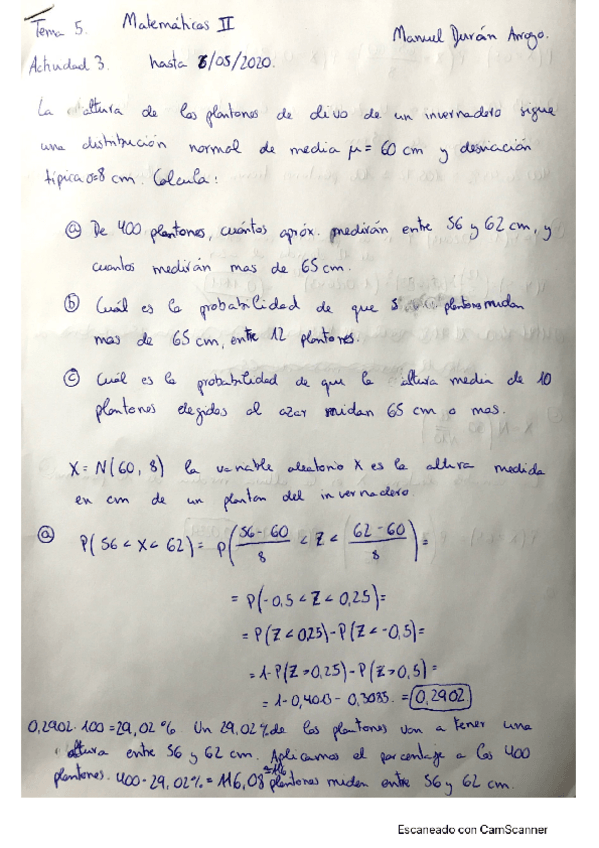 Tema 5. Matemáticas II Manuel Durán Arroyo.
Actividad 3. hasta 8/05/2020.
La altura de los plantones de olivo de un invernadero sigue
una distribución normal de media μ = 60 cm y desviación
típica σ=8 cm. Calcula:
ⓐ De 400 plantones, cuántos apróx. medirán entre 56 y 62 cm, y
cuantos medirán mas de 65 cm.
ⓑ Cuál es la probabilidad de que 5 plantones midan
mas de 65 cm, entre 12 plantones.
ⓒ Cuál es la probabilidad de que la altura media de 10
plantones elegidos al azar midan 65 cm o mas.
X = N(60, 8) la variable aleatorio X es la altura medida
en cm de un plantan del invernadero.
ⓐ P(56 < X < 62) = P(56-60/8 < Z < 62-60/8) =
= P(-0,5 < Z < 0,25) =
= P(Z < 0,25) - P(Z < -0,5) =
= 1 - P(Z > 0,25) - P(Z > 0,5) =
= 1 - 0,4013 - 0,3085. = 0,2902.
0,2902 · 100 = 29,02 % Un 29,02 % de los plantones van a tener una
altura entre 56 y 62 cm. Aplicamos el porcentaje a los 400
plantones. 400 · 29,02% = 116,08 ≈116 plantones miden entre 56 y 62 cm.
Escaneado con CamScanner